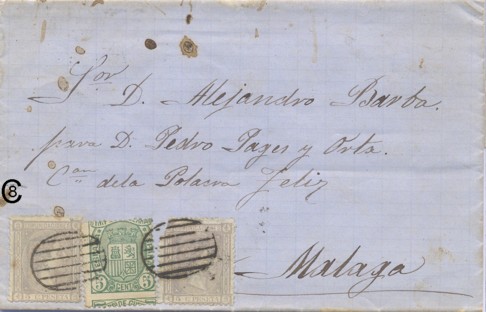 Sor D. Alejandro Barba.
para D. Pedro Pages y Orta.
Can dela Polacra Feliz
C8
Malaga
5 CENT 5